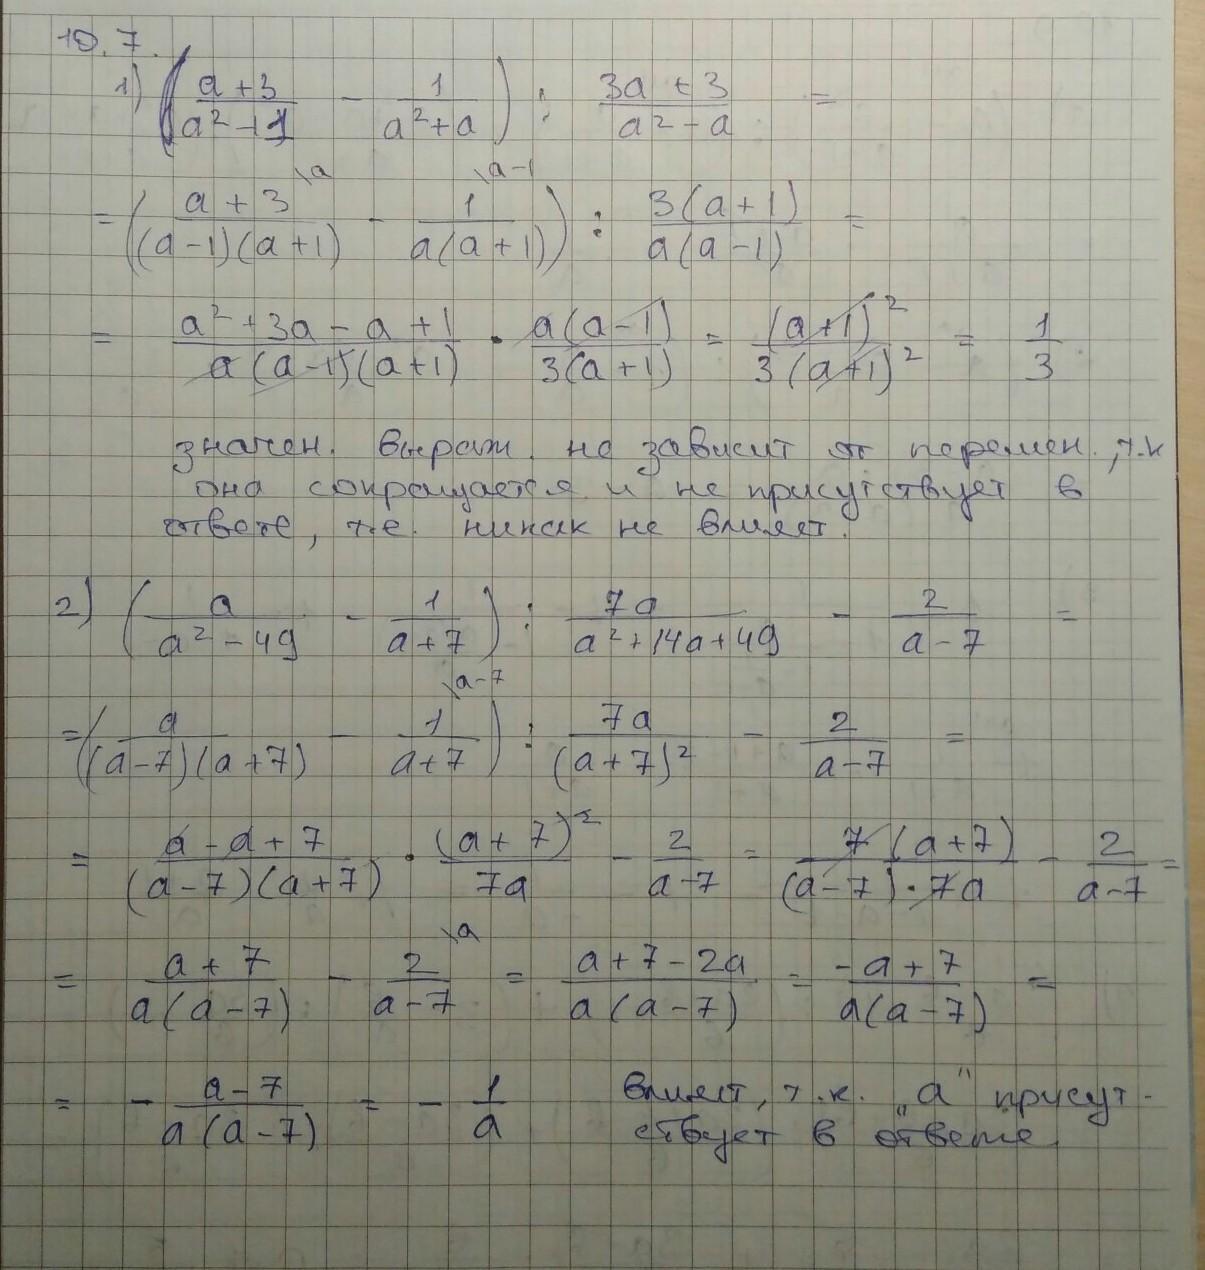 10.7.
1) ((a+3)/(a²-1) - 1/(a²+a)) : (3a+3)/(a²-a) =
= ((a+3)/((a-1)(a+1)) \a - 1/(a(a+1)) \a-1) : 3(a+1)/(a(a-1)) =
= (a²+3a-a+1)/(a(a-1)(a+1)) · a(a-1)/(3(a+1)) = (a+1)²/(3(a+1)²) = 1/3
значен. выраж. не зависит от перемен., т.к
она сокращается и не присутствует в
ответе, т.е. никак не влияет.
2) (a/(a²-49) - 1/(a+7)) : 7a/(a²+14a+49) - 2/(a-7) =
= (a/((a-7)(a+7)) - 1/(a+7) \a-7) : 7a/(a+7)² - 2/(a-7) =
= (a-a+7)/((a-7)(a+7)) · (a+7)²/7a - 2/(a-7) = 7(a+7)/((a-7)·7a) - 2/(a-7) =
= (a+7)/(a(a-7)) - 2/(a-7) \a = (a+7-2a)/(a(a-7)) = (-a+7)/(a(a-7)) =
= - (a-7)/(a(a-7)) = - 1/a влияет, т.к. „a" присут-
ствует в ответе